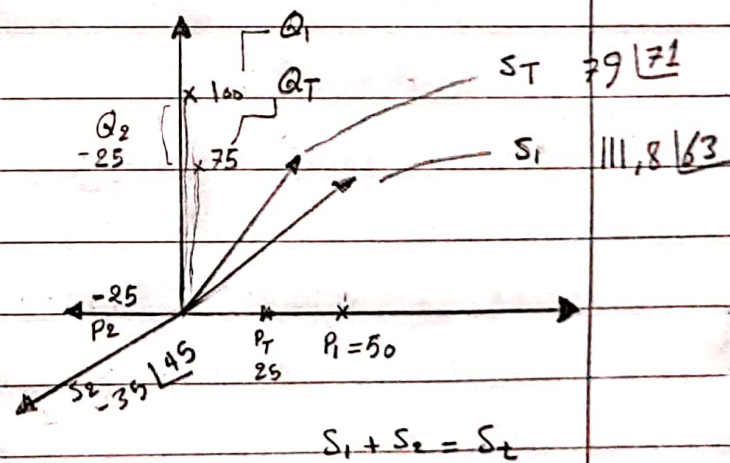 Q₁
S_T 79∠71
100
Q_T
Q₂
-25
75
S₁ 111,8∠63
-25
P₂
P_T
25
P₁ = 50
S₂
-35∠45
S₁ + S₂ = S_t